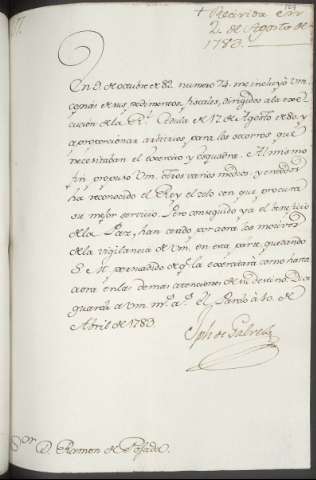 + Recivida en
2. de Agosto de
1783.
En 9. de octubre de 82. numero 74. me incluyó Vm.
copias de sus pedimentos fiscales, dirigidos a la exe-
cucion de la Rl. Cedula de 17 de Agosto de 80. y
a proporcionar arbitrios para los socorros que
necesitaban el exercito y esquadra. Al mismo
fin propuso Vm. otros varios medios, y en todos
ha reconocido el Rey el celo con que procura
su mejor servicio. Pero conseguido ya el beneficio
de la Paz, han cesado por aora los motivos
de la vigilancia de Vm. en esta parte, quedando
S. M. persuadido de qe. la exercitará como hasta
aora en las demas atenciones de su destino. Dios
guarde a Vm. ms. as. El Pardo á 10. de
Abril de 1783.
Jph de Galvez
Sor. D. Ramon de Posada.